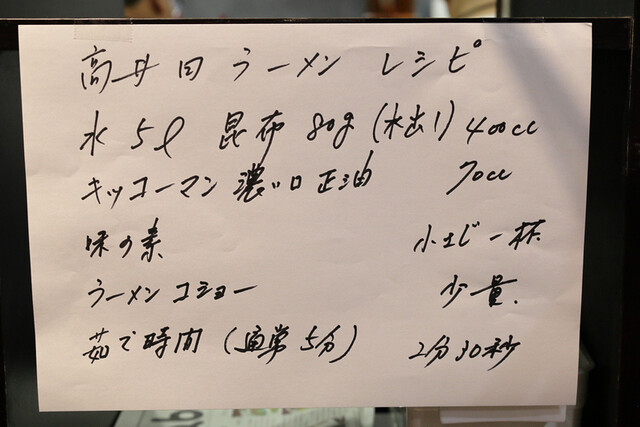 高井田ラーメン レシピ
水 5ℓ 昆布 80g (水出し) 400cc
キッコーマン 濃い口 正油 70cc
味の素 小さじ一杯
ラーメンコショー 少量.
茹で時間 (通常 5分) 2分30秒